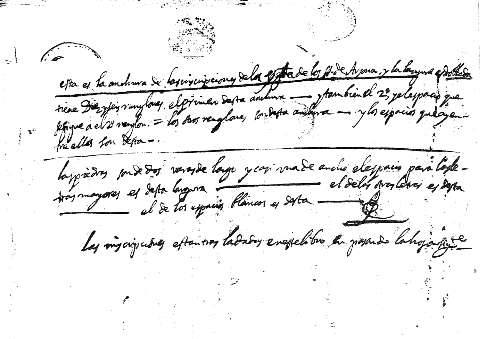 esta es la anchura de las inscripciones de la de los de y la largura
tiene Diez y seis renglones, el primero desta anchura — y tambien el 2º, y el espacio que
sigue a el 2º renglon = los otros renglones son desta anchura — y los espacios que ay en
tre ellos son desta —.
las piedras son de dos varas de largo y casi una de ancho el espacio para las le-
tras mayores es desta largura — el de las otras letras es desta
— el de los espacios blancos es desta —
Las inscripciones estan trasladadas en este libro en pasando la hoja siguiente